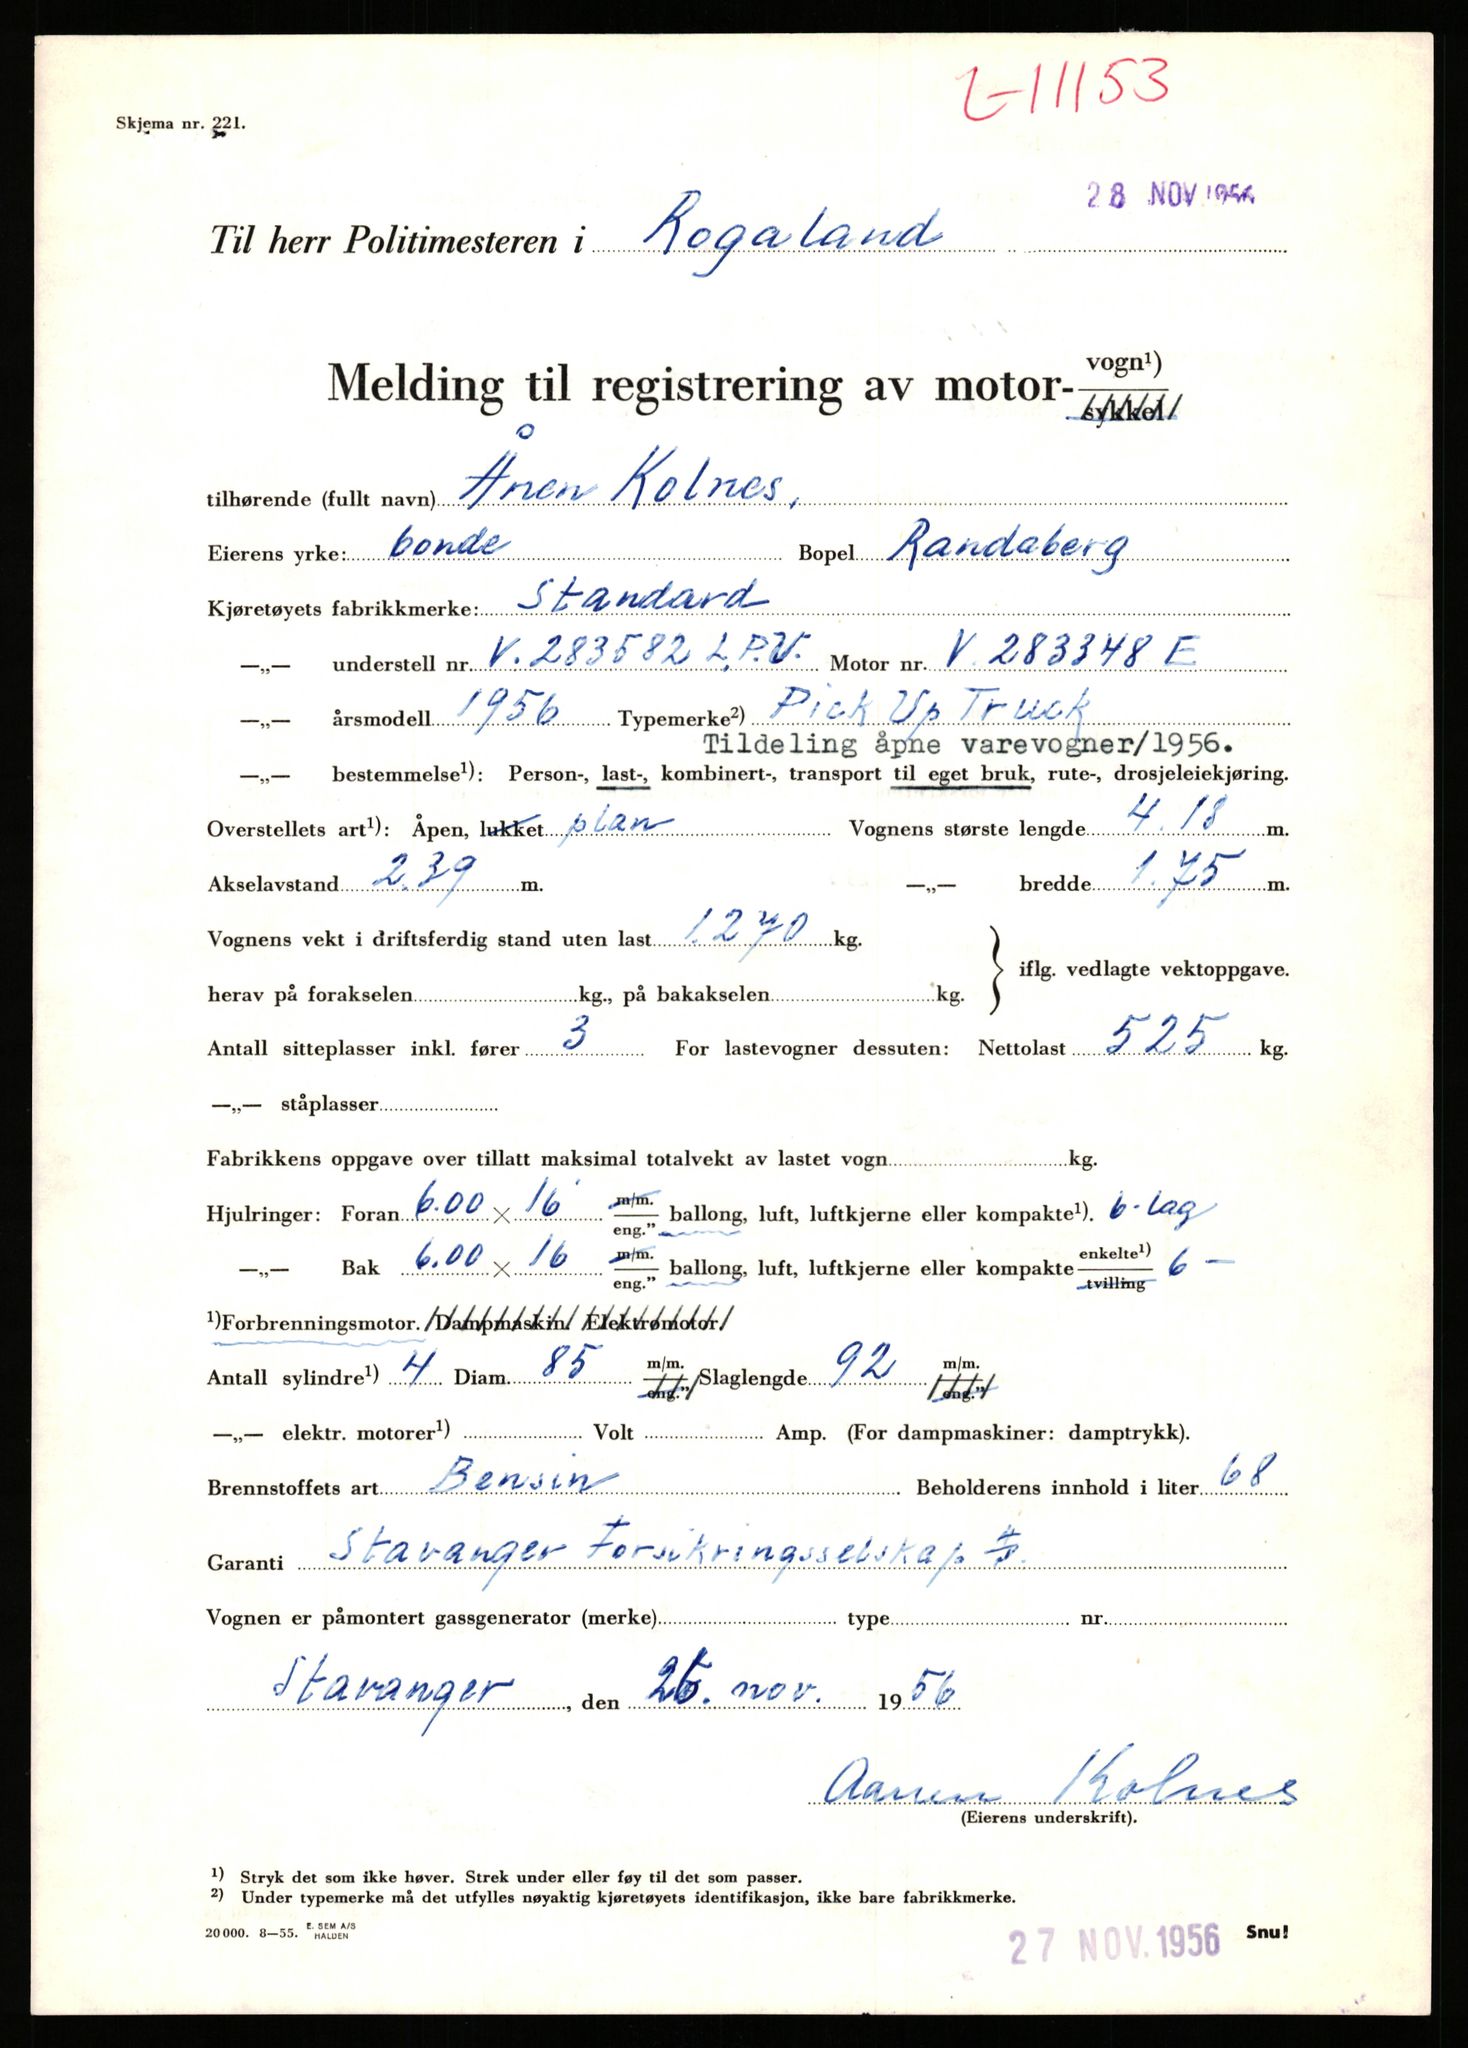 L-11153
Skjema nr. 221.
28 NOV 1956
Til herr Politimesteren i Rogaland
Melding til registrering av motor- vogn¹)
sykkel
tilhørende (fullt navn) Ånen Kolnes,
Eierens yrke: bonde Bopel Randaberg
Kjøretøyets fabrikkmerke: Standard
—„— understell nr. V. 283582 L.P.V. Motor nr. V. 283348 E
—„— årsmodell 1956 Typemerke²) Pick Up Truck
Tildeling åpne varevogner/1956.
—„— bestemmelse¹): Person-, last-, kombinert-, transport til eget bruk, rute-, drosjeleiekjøring.
Overstellets art¹): Åpen, lukket plan Vognens største lengde 4.18 m.
Akselavstand 2.39 m. —„— bredde 1.75 m.
Vognens vekt i driftsferdig stand uten last 1.270 kg.
iflg. vedlagte vektoppgave.
herav på forakselen kg., på bakakselen kg.
Antall sitteplasser inkl. fører 3 For lastevogner dessuten: Nettolast 525 kg.
—„— ståplasser
Fabrikkens oppgave over tillatt maksimal totalvekt av lastet vogn kg.
Hjulringer: Foran 6.00 × 16 m/m. eng.” ballong, luft, luftkjerne eller kompakte¹). 6-lag
—„— Bak 6.00 × 16 m/m. eng.” ballong, luft, luftkjerne eller kompakte enkelte¹) tvilling 6 —
¹)Forbrenningsmotor. Dampmaskin. Elektromotor.
Antall sylindre¹) 4 Diam. 85 m/m. eng.” Slaglengde 92 m/m. eng.”
—„— elektr. motorer¹) Volt Amp. (For dampmaskiner: damptrykk).
Brennstoffets art Bensin Beholderens innhold i liter 68
Garanti Stavanger Forsikringsselskap A/S.
Vognen er påmontert gassgenerator (merke) type nr.
Stavanger, den 26. nov. 1956
Aanen Kolnes
(Eierens underskrift).
¹) Stryk det som ikke høver. Strek under eller føy til det som passer.
²) Under typemerke må det utfylles nøyaktig kjøretøyets identifikasjon, ikke bare fabrikkmerke.
20 000. 8—55. E. SEM A/S HALDEN
27 NOV. 1956 Snu!